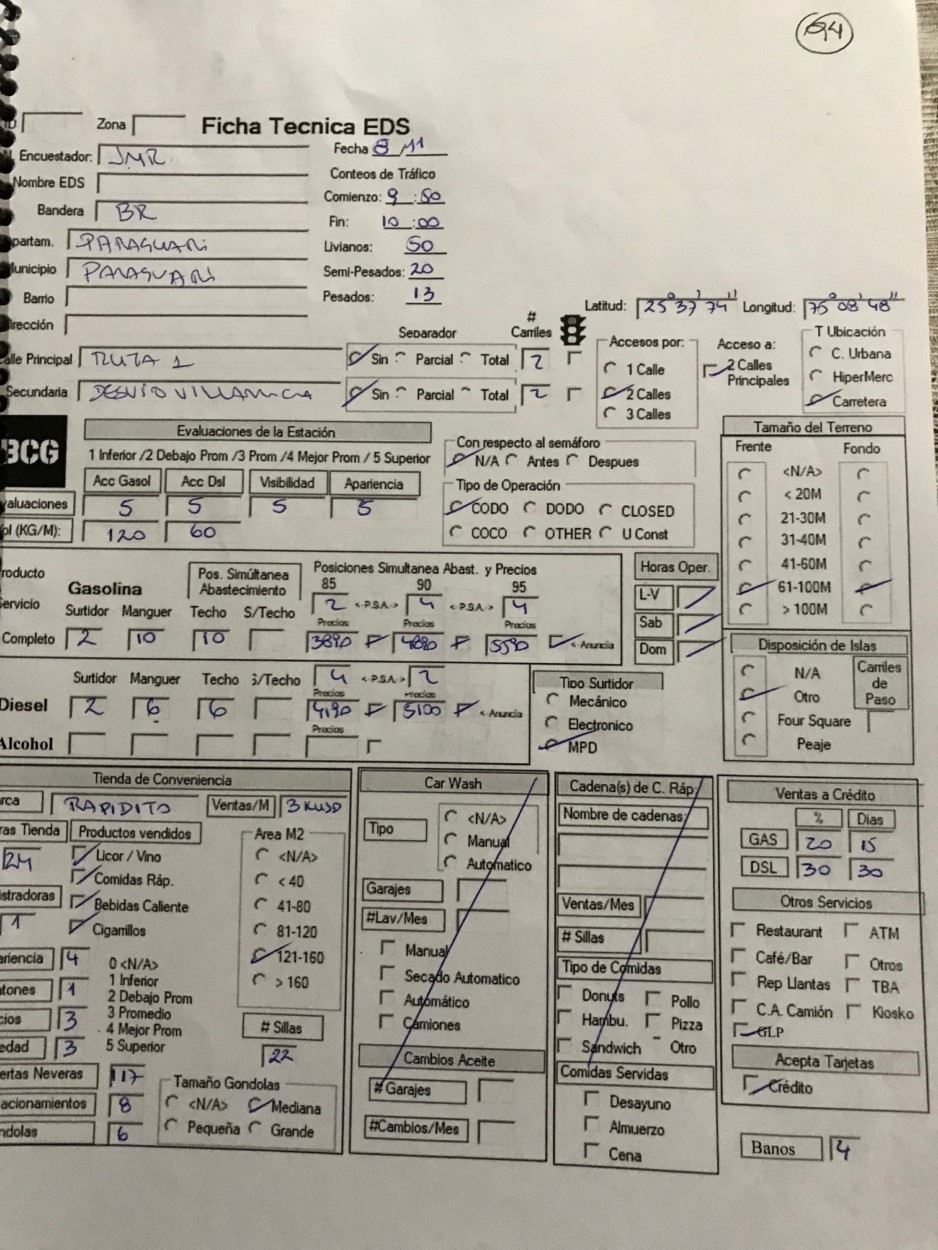 94
ID Zona Ficha Tecnica EDS
Encuestador: JMR Fecha 8/11
Nombre EDS Conteos de Tráfico
Bandera BR Comienzo: 9:50
Fin: 10:00
partam. PARAGUARI Livianos: 50
unicipio PARAGUARI Semi-Pesados: 20
Barrio Pesados: 13
irección Latitud: 25° 37' 74" Longitud: 75° 08' 48"
Separador # Carriles Accesos por: Acceso a: T Ubicación
alle Principal RUTA 1 Sin Parcial Total 2 1 Calle 2 Calles Principales C. Urbana
Secundaria DESVIO VILLARRICA Sin Parcial Total 2 2 Calles HiperMerc
3 Calles Carretera
BCG Evaluaciones de la Estación Tamaño del Terreno
1 Inferior /2 Debajo Prom /3 Prom /4 Mejor Prom / 5 Superior Con respecto al semáforo Frente Fondo
N/A Antes Despues <N/A>
Acc Gasol Acc Dsl Visibilidad Apariencia Tipo de Operación < 20M
valuaciones 5 5 5 5 CODO DODO CLOSED 21-30M
ol (KG/M): 120 60 COCO OTHER U Const 31-40M
41-60M
61-100M
> 100M
roducto Gasolina Pos. Simúltanea Abastecimiento Posiciones Simultanea Abast. y Precios Horas Oper.
85 90 95 L-V
ervicio Surtidor Manguer Techo S/Techo 2 <-P.S.A-> 4 <-P.S.A-> 4 Sab
Precios Precios Precios Dom
Completo 2 10 10 3890 4890 5590 <- Anuncia
Disposición de Islas
N/A Carriles de Paso
Otro
Four Square
Peaje
Surtidor Manguer Techo S/Techo 4 <-P.S.A-> 2 Tipo Surtidor
Precios Precios Mecánico
Diesel 2 6 6 4190 5100 <- Anuncia Electronico
Precios MPD
Alcohol
Tienda de Conveniencia
arca RAPIDITO Ventas/M 3 KUSD
ras Tienda Productos vendidos Area M2
24 Licor / Vino <N/A>
Comidas Ráp. < 40
istradoras Bebidas Caliente 41-80
1 Cigarrillos 81-120
ariencia 4 0 <N/A> 121-160
1 Inferior > 160
tones 1 2 Debajo Prom
cios 3 3 Promedio # Sillas
4 Mejor Prom
edad 3 5 Superior 22
ertas Neveras 17 Tamaño Gondolas
acionamientos 8 <N/A> Mediana
ndolas 6 Pequeña Grande
Car Wash
Tipo <N/A>
Manual
Automatico
Garajes
#Lav/Mes
Manual
Secado Automatico
Automático
Camiones
Cambios Aceite
# Garajes
#Cambios/Mes
Cadena(s) de C. Ráp.
Nombre de cadenas:
Ventas/Mes
# Sillas
Tipo de Comidas
Donuts Pollo
Hambu. Pizza
Sandwich Otro
Comidas Servidas
Desayuno
Almuerzo
Cena
Ventas a Crédito
% Dias
GAS 20 15
DSL 30 30
Otros Servicios
Restaurant ATM
Café/Bar Otros
Rep Llantas TBA
C.A. Camión Kiosko
GLP
Acepta Tarjetas
Crédito
Banos 4